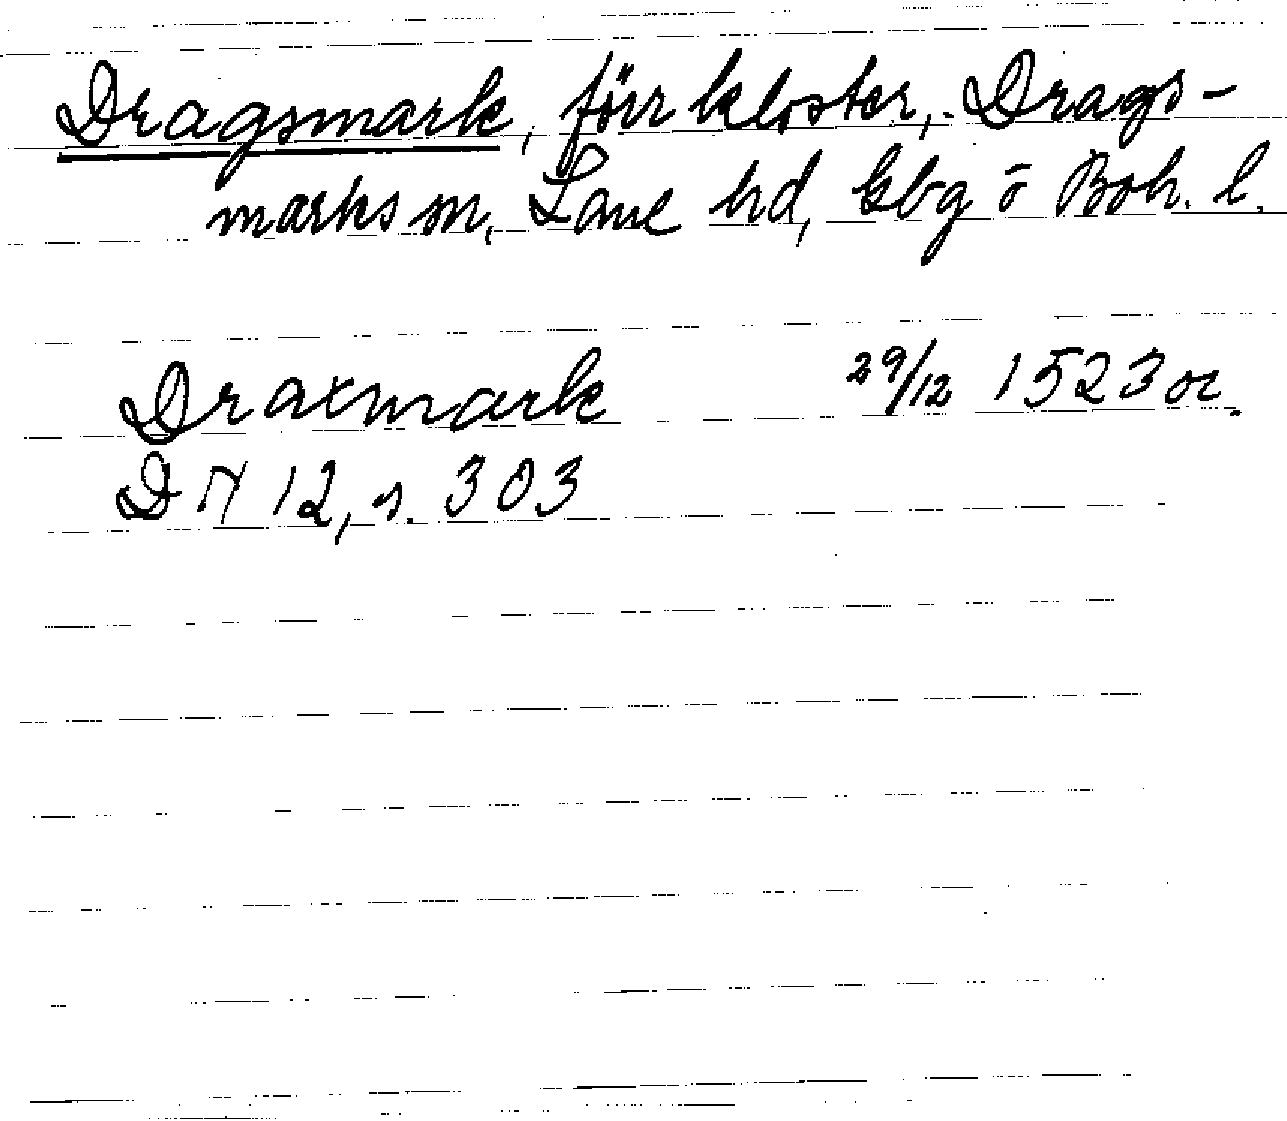 Dragsmark, förr kloster, Drags-
marks sn, Lane hd, Gbg o Boh. l.
Draxmark 29/12 1523 or.
DN 12, s. 303